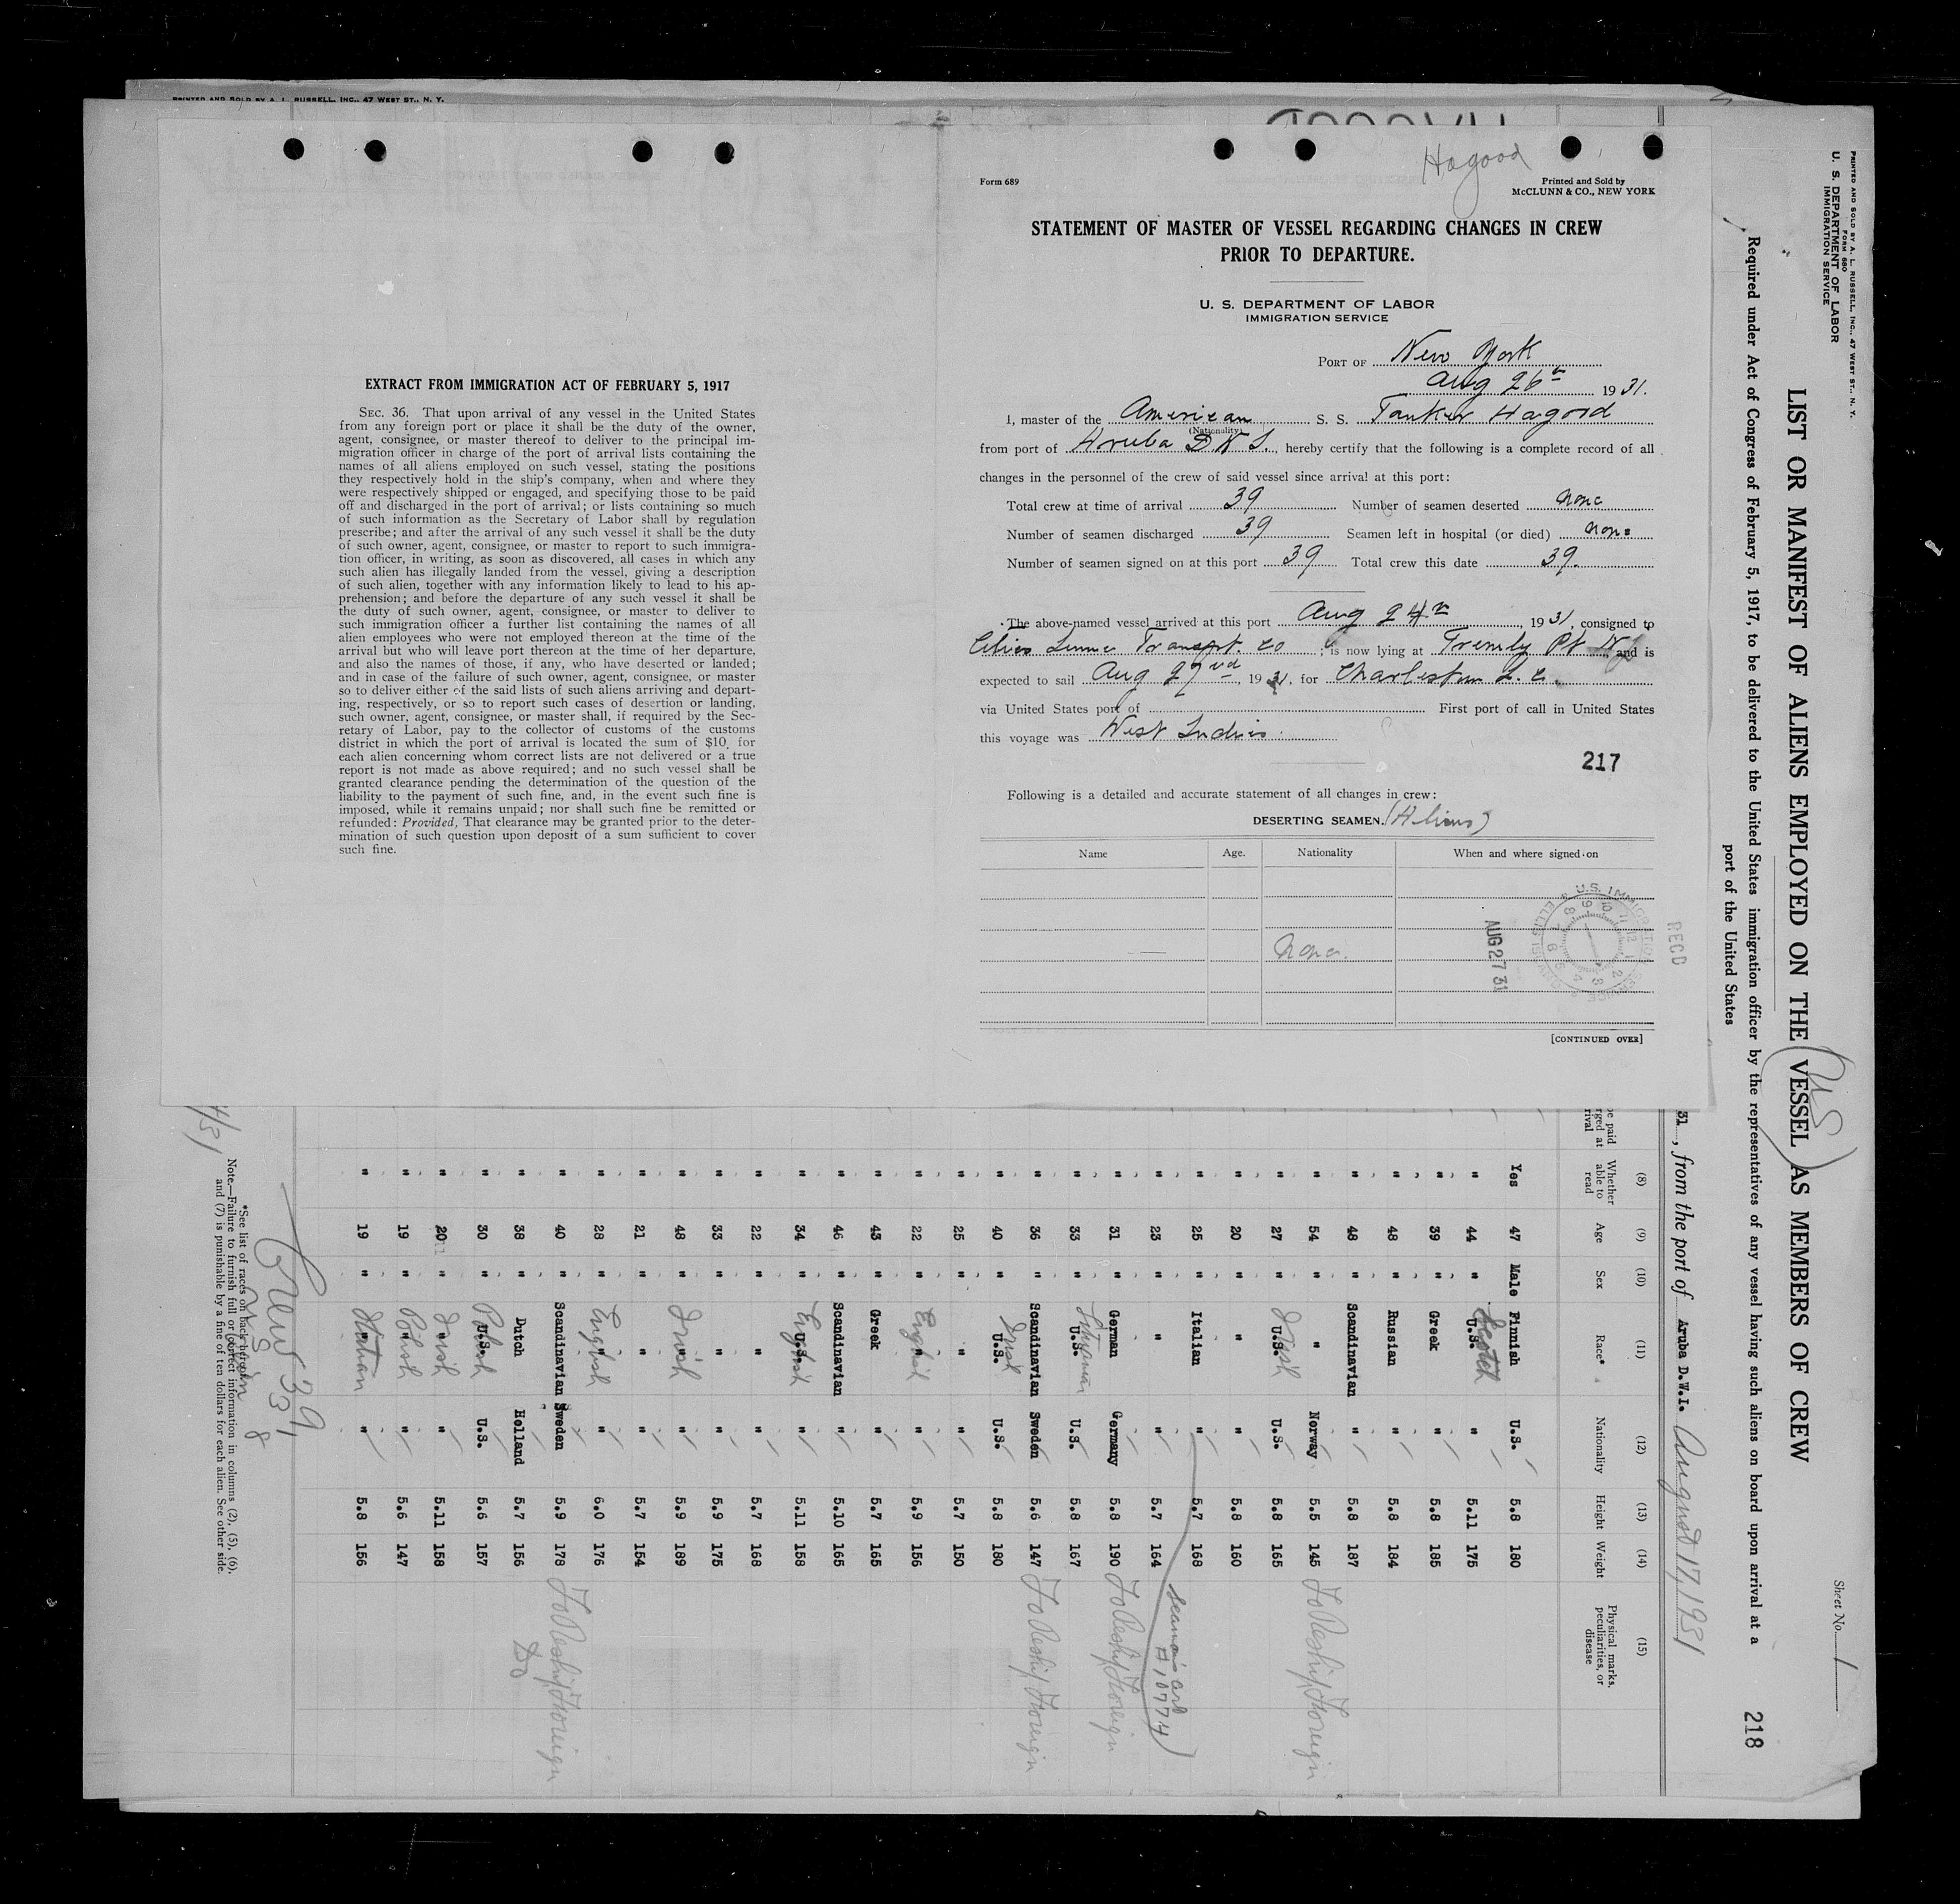 PRINTED AND SOLD BY A. L. RUSSELL, INC., 47 WEST ST., N. Y.
EXTRACT FROM IMMIGRATION ACT OF FEBRUARY 5, 1917
SEC. 36. That upon arrival of any vessel in the United States
from any foreign port or place it shall be the duty of the owner,
agent, consignee, or master thereof to deliver to the principal im-
migration officer in charge of the port of arrival lists containing the
names of all aliens employed on such vessel, stating the positions
they respectively hold in the ship's company, when and where they
were respectively shipped or engaged, and specifying those to be paid
off and discharged in the port of arrival; or lists containing so much
of such information as the Secretary of Labor shall by regulation
prescribe; and after the arrival of any such vessel it shall be the duty
of such owner, agent, consignee, or master to report to such immigra-
tion officer, in writing, as soon as discovered, all cases in which any
such alien has illegally landed from the vessel, giving a description
of such alien, together with any information likely to lead to his ap-
prehension; and before the departure of any such vessel it shall be
the duty of such owner, agent, consignee, or master to deliver to
such immigration officer a further list containing the names of all
alien employees who were not employed thereon at the time of the
arrival but who will leave port thereon at the time of her departure,
and also the names of those, if any, who have deserted or landed;
and in case of the failure of such owner, agent, consignee, or master
so to deliver either of the said lists of such aliens arriving and depart-
ing, respectively, or so to report such cases of desertion or landing,
such owner, agent, consignee, or master shall, if required by the Sec-
retary of Labor, pay to the collector of customs of the customs
district in which the port of arrival is located the sum of $10 for
each alien concerning whom correct lists are not delivered or a true
report is not made as above required; and no such vessel shall be
granted clearance pending the determination of the question of the
liability to the payment of such fine, and, in the event such fine is
imposed, while it remains unpaid; nor shall such fine be remitted or
refunded: Provided, That clearance may be granted prior to the deter-
mination of such question upon deposit of a sum sufficient to cover
such fine.
Hagood
Form 689
Printed and Sold by
McCLUNN & CO., NEW YORK
STATEMENT OF MASTER OF VESSEL REGARDING CHANGES IN CREW
PRIOR TO DEPARTURE.
U. S. DEPARTMENT OF LABOR
IMMIGRATION SERVICE
PORT OF New York
Aug 26th 1931.
I, master of the American S. S. Tanker Hagood
(Nationality)
from port of Aruba D W I., hereby certify that the following is a complete record of all
changes in the personnel of the crew of said vessel since arrival at this port:
Total crew at time of arrival 39 Number of seamen deserted none
Number of seamen discharged 39 Seamen left in hospital (or died) none
Number of seamen signed on at this port 39 Total crew this date 39.
The above-named vessel arrived at this port Aug 24th, 1931, consigned to
Transpt. Co; is now lying at Tremly Pt NJ and is
expected to sail Aug 27nd, 1931, for Charleston S. C.
via United States port of First port of call in United States
this voyage was West Indies.
217
Following is a detailed and accurate statement of all changes in crew:
DESERTING SEAMEN. (Aliens)
Name Age. Nationality When and where signed on
None.
U.S. IMMIGRATION SERVICE
ELLIS ISLAND
RECD
AUG 27 31
[CONTINUED OVER]
PRINTED AND SOLD BY A. L. RUSSELL, INC., 47 WEST ST., N. Y.
FORM 680
U. S. DEPARTMENT OF LABOR
IMMIGRATION SERVICE
Sheet No. 1
LIST OR MANIFEST OF ALIENS EMPLOYED ON THE VESSEL AS MEMBERS OF CREW
(US)
Required under Act of Congress of February 5, 1917, to be delivered to the United States immigration officer by the representatives of any vessel having such aliens on board upon arrival at a
port of the United States
218
31, from the port of Aruba D.W.I. August 17, 1931
(8) (9) (10) (11) (12) (13) (14) (15)
Whether able to read Age Sex Race* Nationality Height Weight Physical marks, peculiarities, or disease
Yes 47 Male Finnish U.S. 5.8 180
" 44 " U.S. Scotch " 5.11 175
" 39 " Greek " 5.8 185
" 48 " Russian " 5.8 184
" 48 " Scandinavian " 5.8 187
" 54 " " Norway 5.5 145 To Reship Foreign
" 27 " U.S. Irish U.S. 5.8 165
" 20 " " " 5.8 160
" 25 " Italian " 5.7 168 Seaman's card #10774
" 23 " " " 5.7 164
" 31 " German Germany 5.8 190 To Reship Foreign
" 33 " U.S. U.S. 5.8 167
" 36 " Scandinavian Sweden 5.6 147 To Reship Foreign
" 40 " U.S. Irish U.S. 5.8 180
" 25 " " " 5.7 150
" 22 " " English " 5.9 156
" 43 " Greek " 5.7 165
" 46 " Scandinavian " 5.10 165
" 34 " U.S. English " 5.11 158
" 22 " " " 5.7 168
" 33 " " " 5.9 175
" 48 " " Irish " 5.9 189
" 21 " " " 5.7 154
" 28 " " English " 6.0 176
" 40 " Scandinavian Sweden 5.9 178 To Reship Foreign
" 38 " Dutch Holland 5.7 156 Do
" 30 " U.S. Polish U.S. 5.6 157
" 20 " " Irish " 5.11 158
" 19 " " Polish " 5.6 147
" 19 " " Italian " 5.8 156
Crew 39
US 31
*See list of races on back hereof.
Note.—Failure to furnish full or correct information in columns (2), (5), (6),
and (7) is punishable by a fine of ten dollars for each alien. See other side.